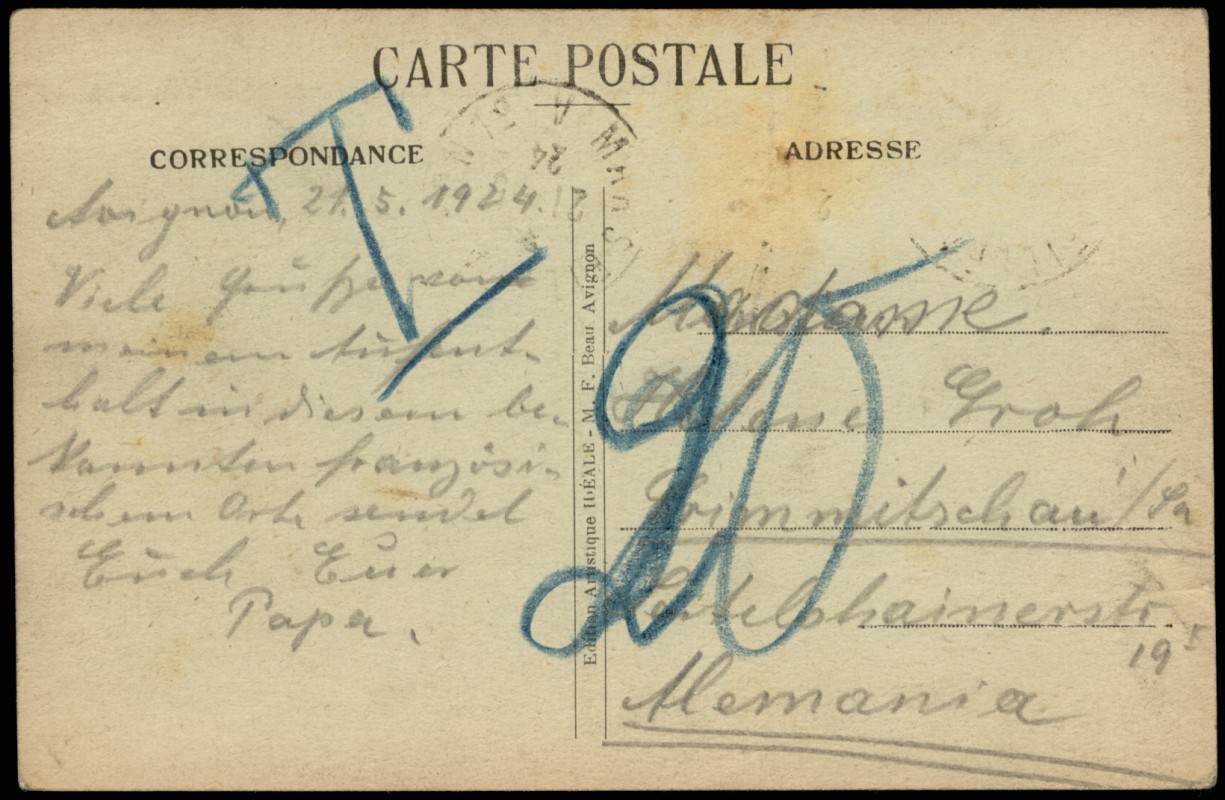 CARTE POSTALE
CORRESPONDANCE
ADRESSE
Avignon, 21. 5. 1924.
Viele Grüße von
meinem Aufent-
halt in diesem be-
kannten französi-
schem Orte sendet
Euch Euer
Papa.
T
20
21
24
Edition Artistique IDÉALE - M. F. Beau Avignon
Madame
Helene Groh
Crimmitschau/Sa
Leitelshainerstr.
19 I
Alemania